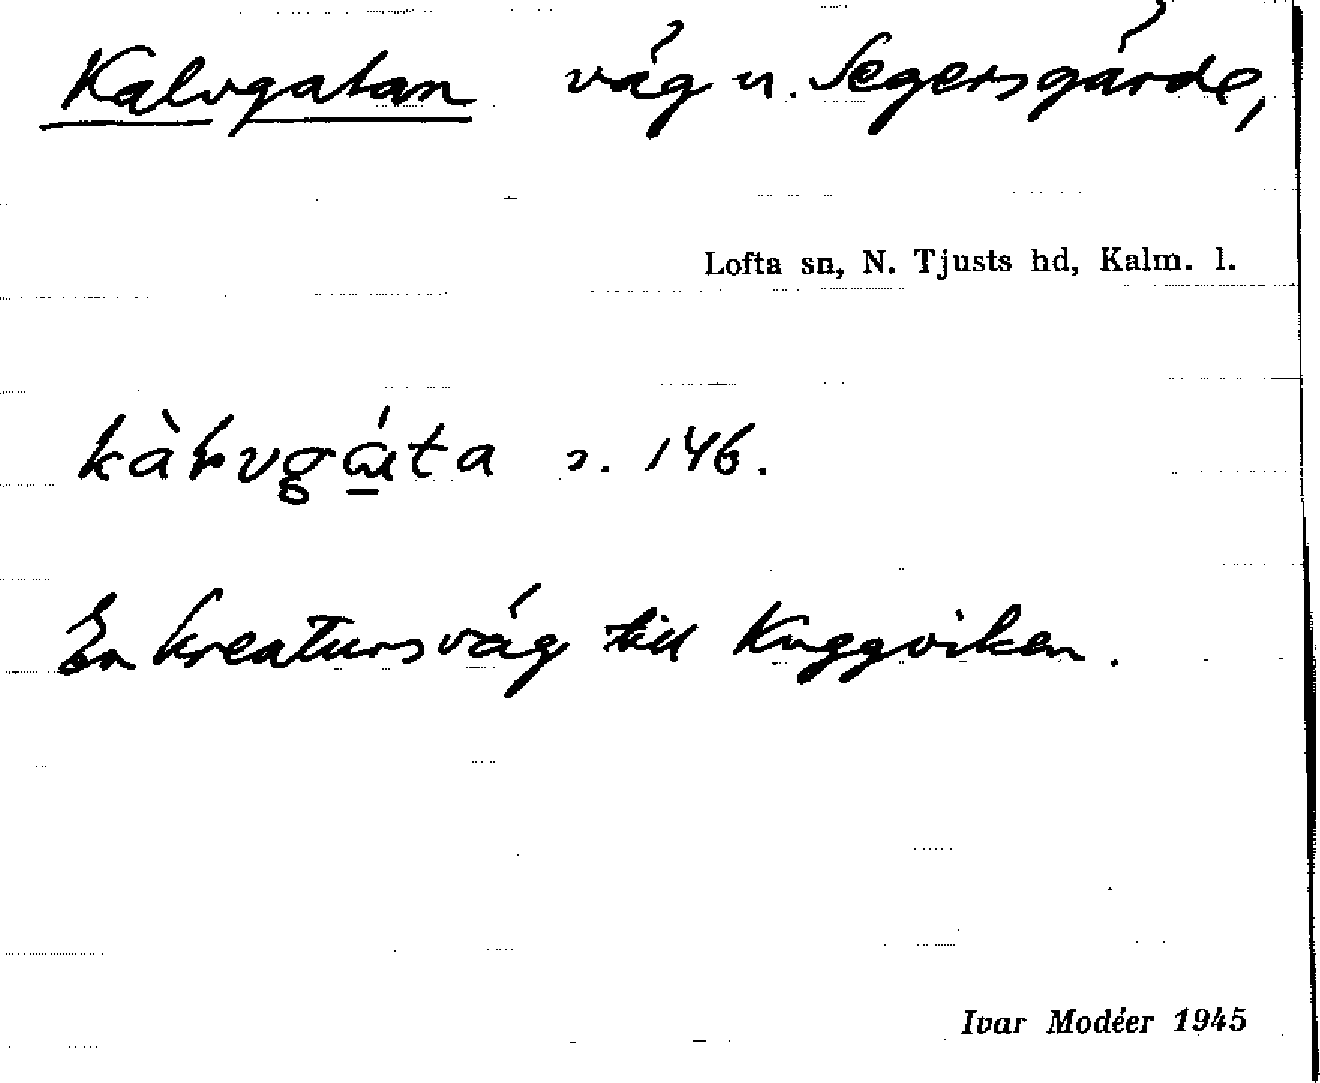 Kalvgatan väg u. Segersgärde,
Lofta sn, N. Tjusts hd, Kalm. l.
s. 146.
En kreatursväg till Kuggviken.
Ivar Modéer 1945